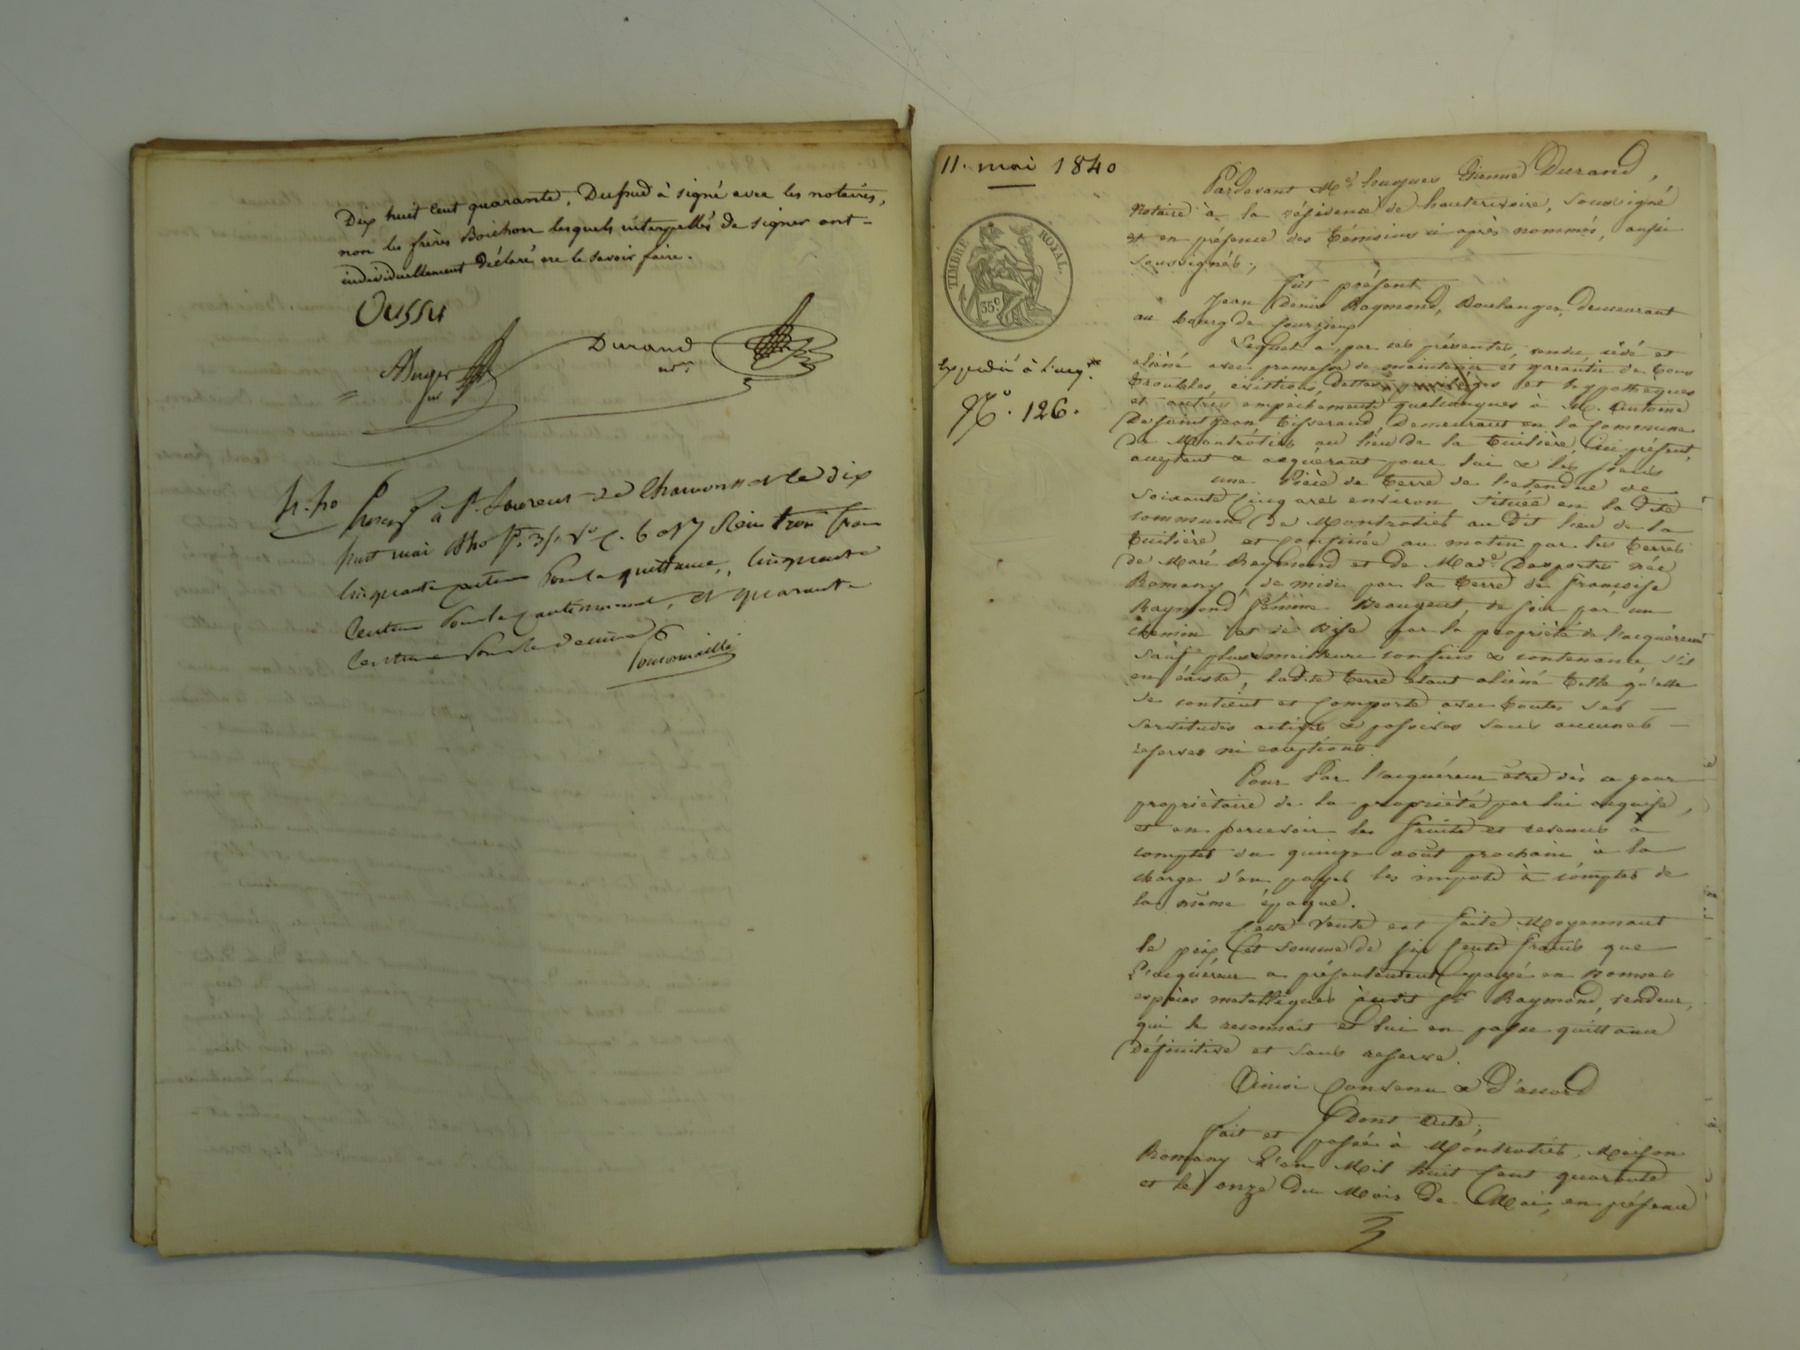 Dix huit cent quarante, Dussud à signé avec les notaires,
non les frères Boichon lesquels interpellés de signer ont
individuellement déclaré ne le savoir faire.
Dussu
Durand
nre
à St. Laurent de Chamousset le dix
huit mai
cinquante centimes pour la quittance, cinquante
centimes pour le cautionnement, et quarante
centimes pour le décime
11. mai 1840
TIMBRE ROYAL.
35c.
Expédié à l'acqr.
No. 126.
Pardevant Me. hugues Etienne Durand,
Notaire à la résidence de hauterivoire, soussigné
et en présence des témoins ci après nommés, aussi
soussignés;
fut présent
Jean Denis Raymond, Boulanger, demeurant
au bourg de
Lequel a par ces présentes, vendu cédé et
aliéné avec promesse de maintenir et garantir de tous
troubles, évictions, dettes, privilèges et hypothèques
et autres empêchements quelconques à M. Antoine
Tisserand, demeurant en la commune
de Montrotier, au lieu de la tuilière, ici présent,
acceptant & acquérant pour lui & les siens
une pièce de terre de l'étendue de
soixante cinq ares environ située en la dite
commune de Montrotier au dit lieu de la
tuilière et confinée au matin par les terres
de Marie Raymond et de Made. Desportes née
Romany, de midi par la terre de françoise
Raymond femme de soir par un
chemin et de bise par la propriété de l'acquéreur
sauf plus meilleurs confins & contenance, s'il
en existe, ladite terre étant aliéné telle qu'elle
se contient et comporte avec toutes ses
servitudes actives & passives sans aucunes
réserves ni exceptions.
Pour Par l'acquéreur être dès ce jour
propriétaire de la propriété par lui acquise,
et en percevoir les fruits et revenus à
compter du quinze août prochain, à la
charge d'en payer les impots à compter de
la même époque.
Cette Vente est faite Moyennant
le prix et somme de six cents francs que
l'acquéreur a présentement payé en bonnes
espèces metalliques audit Sr. Raymond, vendeur,
qui le reconnait et lui en passe quittance
Définitive et sans reserve.
Ainsi Convenu & d'accord
Dont Acte,
fait et passé à Montrotier, Maison
Romany l'an Mil huit cent quarante
et le onze du Mois de Mai, en présence